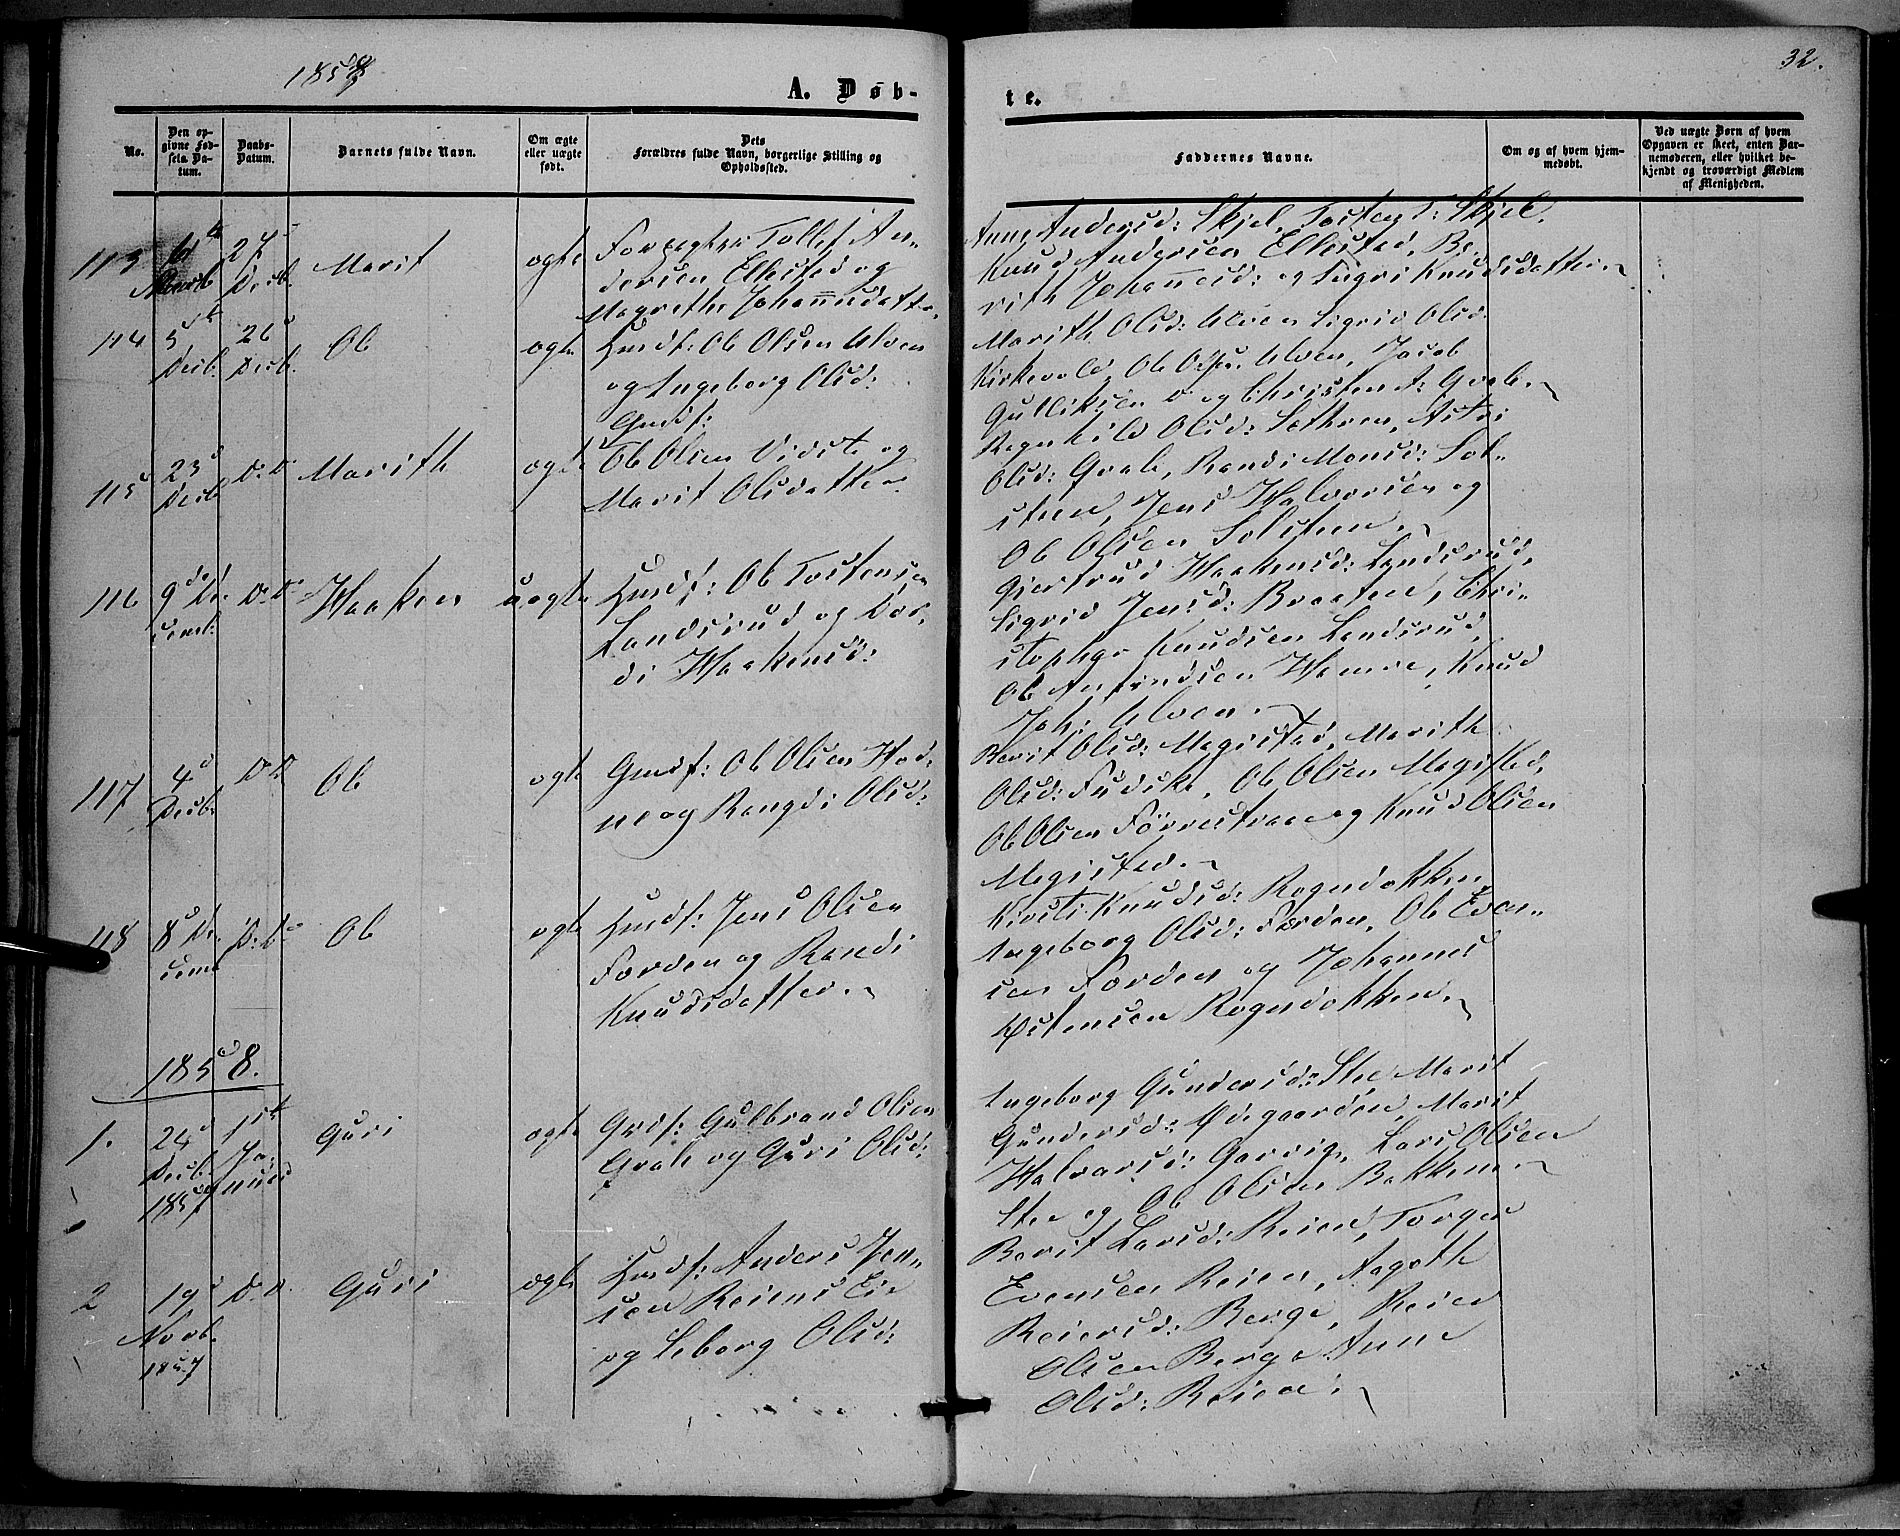 1858
32.
A. Døb-
te.
No.
Den op-
givne Fød-
sels Da-
tum.
Daabs-
Datum.
Barnets fulde Navn.
Om ægte
eller uægte
født.
Dets
Forældres fulde Navn, borgerlige Stilling og
Opholdssted.
Faddernes Navne.
Om og af hvem hjem-
medøbt.
Ved uægte Børn af hvem
Opgaven er skeet, enten Bar-
nemoderen, eller hvilket be-
kjendt og troværdigt Medlem
af Menigheden.
113
27
Decb.
Marit
ægte
Tollef An-
dersen Ellestad og
Magrethe Johannesdatter.
Anne Andersd: Skjel, Tosten T: Skjel,
Knud Andersen Ellestad, Be-
rith Johannesd: og Ingri Knudsdatter
114
5te
Decb.
26
Decb.
Ole
ægte
Husmf: Ole Olsen Ulven
og Ingeborg Olsd:
Marith Olsd: Ulven Sigrid Olsd:
Kirkevold, Ole Ulven, Jacob
Gulliksen og Christen A: Grale
115
23
Decb
Do Do
Marith
ægte
Gmdf:
Ole Olsen Vidste og
Marit Olsdatter
Ragnhild Olsd: Sæthren, Astri
Olsd: Grale, Randi Monsd: Sol-
steen, Jens Halvorsen og
Ole Olsen Solsteen.
116
9de De-
cemb:
Do Do
Haaken
uægte
Husmf: Ole Tostensen
Landsrud og Dor-
di Haakensd:
Gjertrud Haakensd: Landsrud,
Sigrid Jensd: Braaten, Chri-
stopher Knudsen Landsrud,
Ole Amundsen Hamre, Knud
Joh: Ulven.
117
4
Decb.
Do Do
Ole
ægte
Gmdf: Ole Olsen Hod-
ne og Rangdi Olsd:
Berit Olsd: Magistad, Marith
Olsd: Fudske, Ole Olsen Magistad,
Ole Olsen Førrestraae og Knud Olsen
Megistad.
118
8 De-
cemb
Do Do
Ole
ægte
Husmf: Jens Olsen
Førden og Randi
Knudsdatter.
Kirsti Knudsd: Rogndokken
Ingeborg Olsd: Førden, Ole Even-
sen Førden og Johannes
Østensen Rogndokken.
1858.
1.
24
Decb.
1857
1ste
Ja-
nuar
Guri
ægte
Grdf: Gulbrand Olsen
Grale og Guri Olsd:
Ingeborg Gundersd: Stee Marit
Gundersd: Øde gaarden, Marit
Halvorsd: Garvig, Lars Olsen
Stee og Ole Olsen Bakken
2
19
Novb.
1857
Do Do
Guri
ægte
Husmf: Anders Jen-
sen Reiens Eie
og Seborg Olsd:
Berit Larsd: Reien, Torger
Evensen Reien, Aagoth
Reiersd: Berge, Reier
Olsen Berge Anne
Olsd: Reien.